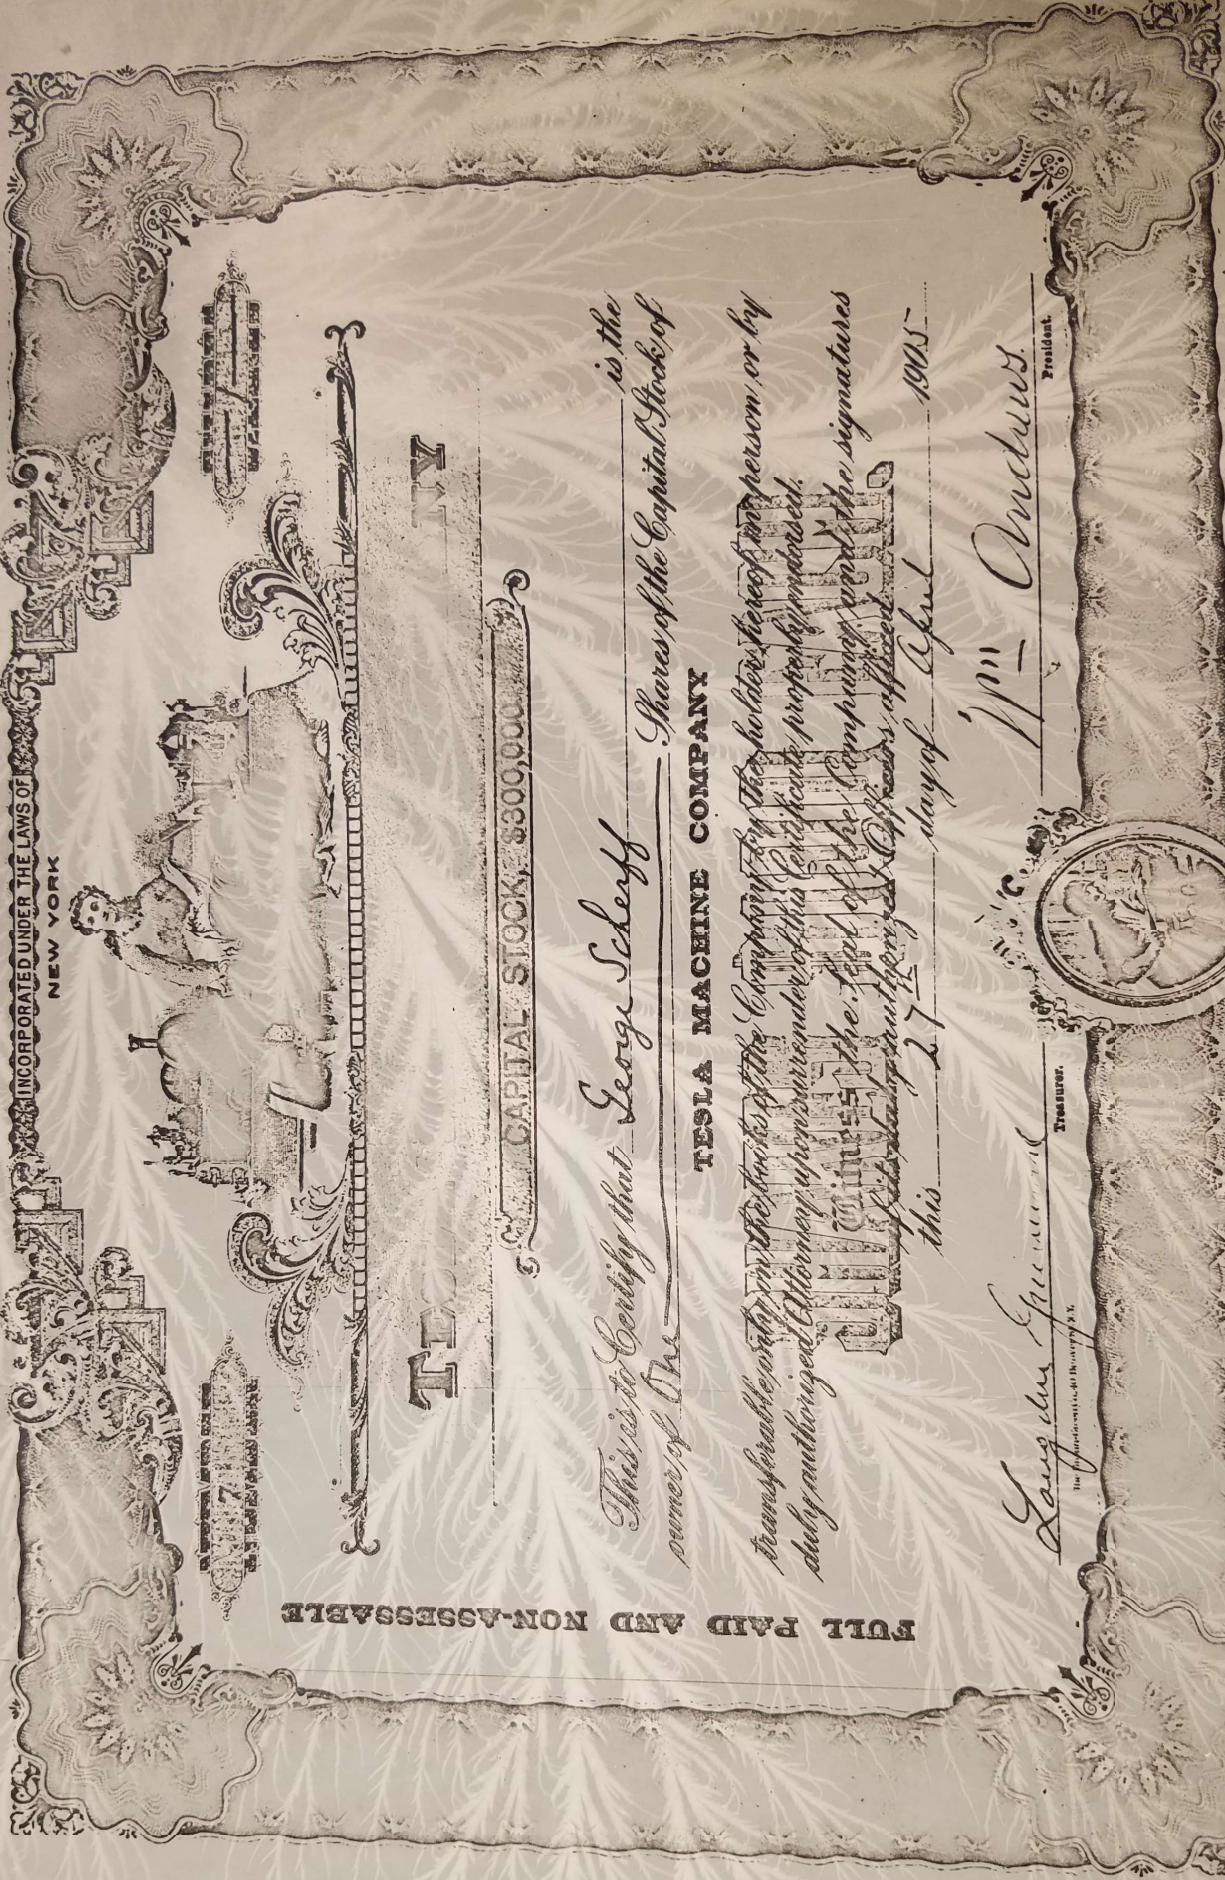 INCORPORATED UNDER THE LAWS OF
NEW YORK
7
1
TE NY
CAPITAL STOCK, $300,000.
This is to Certify that George Scherff is the
owner of One Shares of the Capital Stock of
TESLA MACHINE COMPANY
transferable only on the books of the Company by the holder hereof in person or by
duly authorized Attorney upon surrender of this Certificate properly endorsed.
Witness, the Seal of the Company and the signatures
of its duly authorized Officers affixed
this 27th day of April 1905
Wm Andrews.
Treasurer.
President.
FULL PAID AND NON-ASSESSABLE